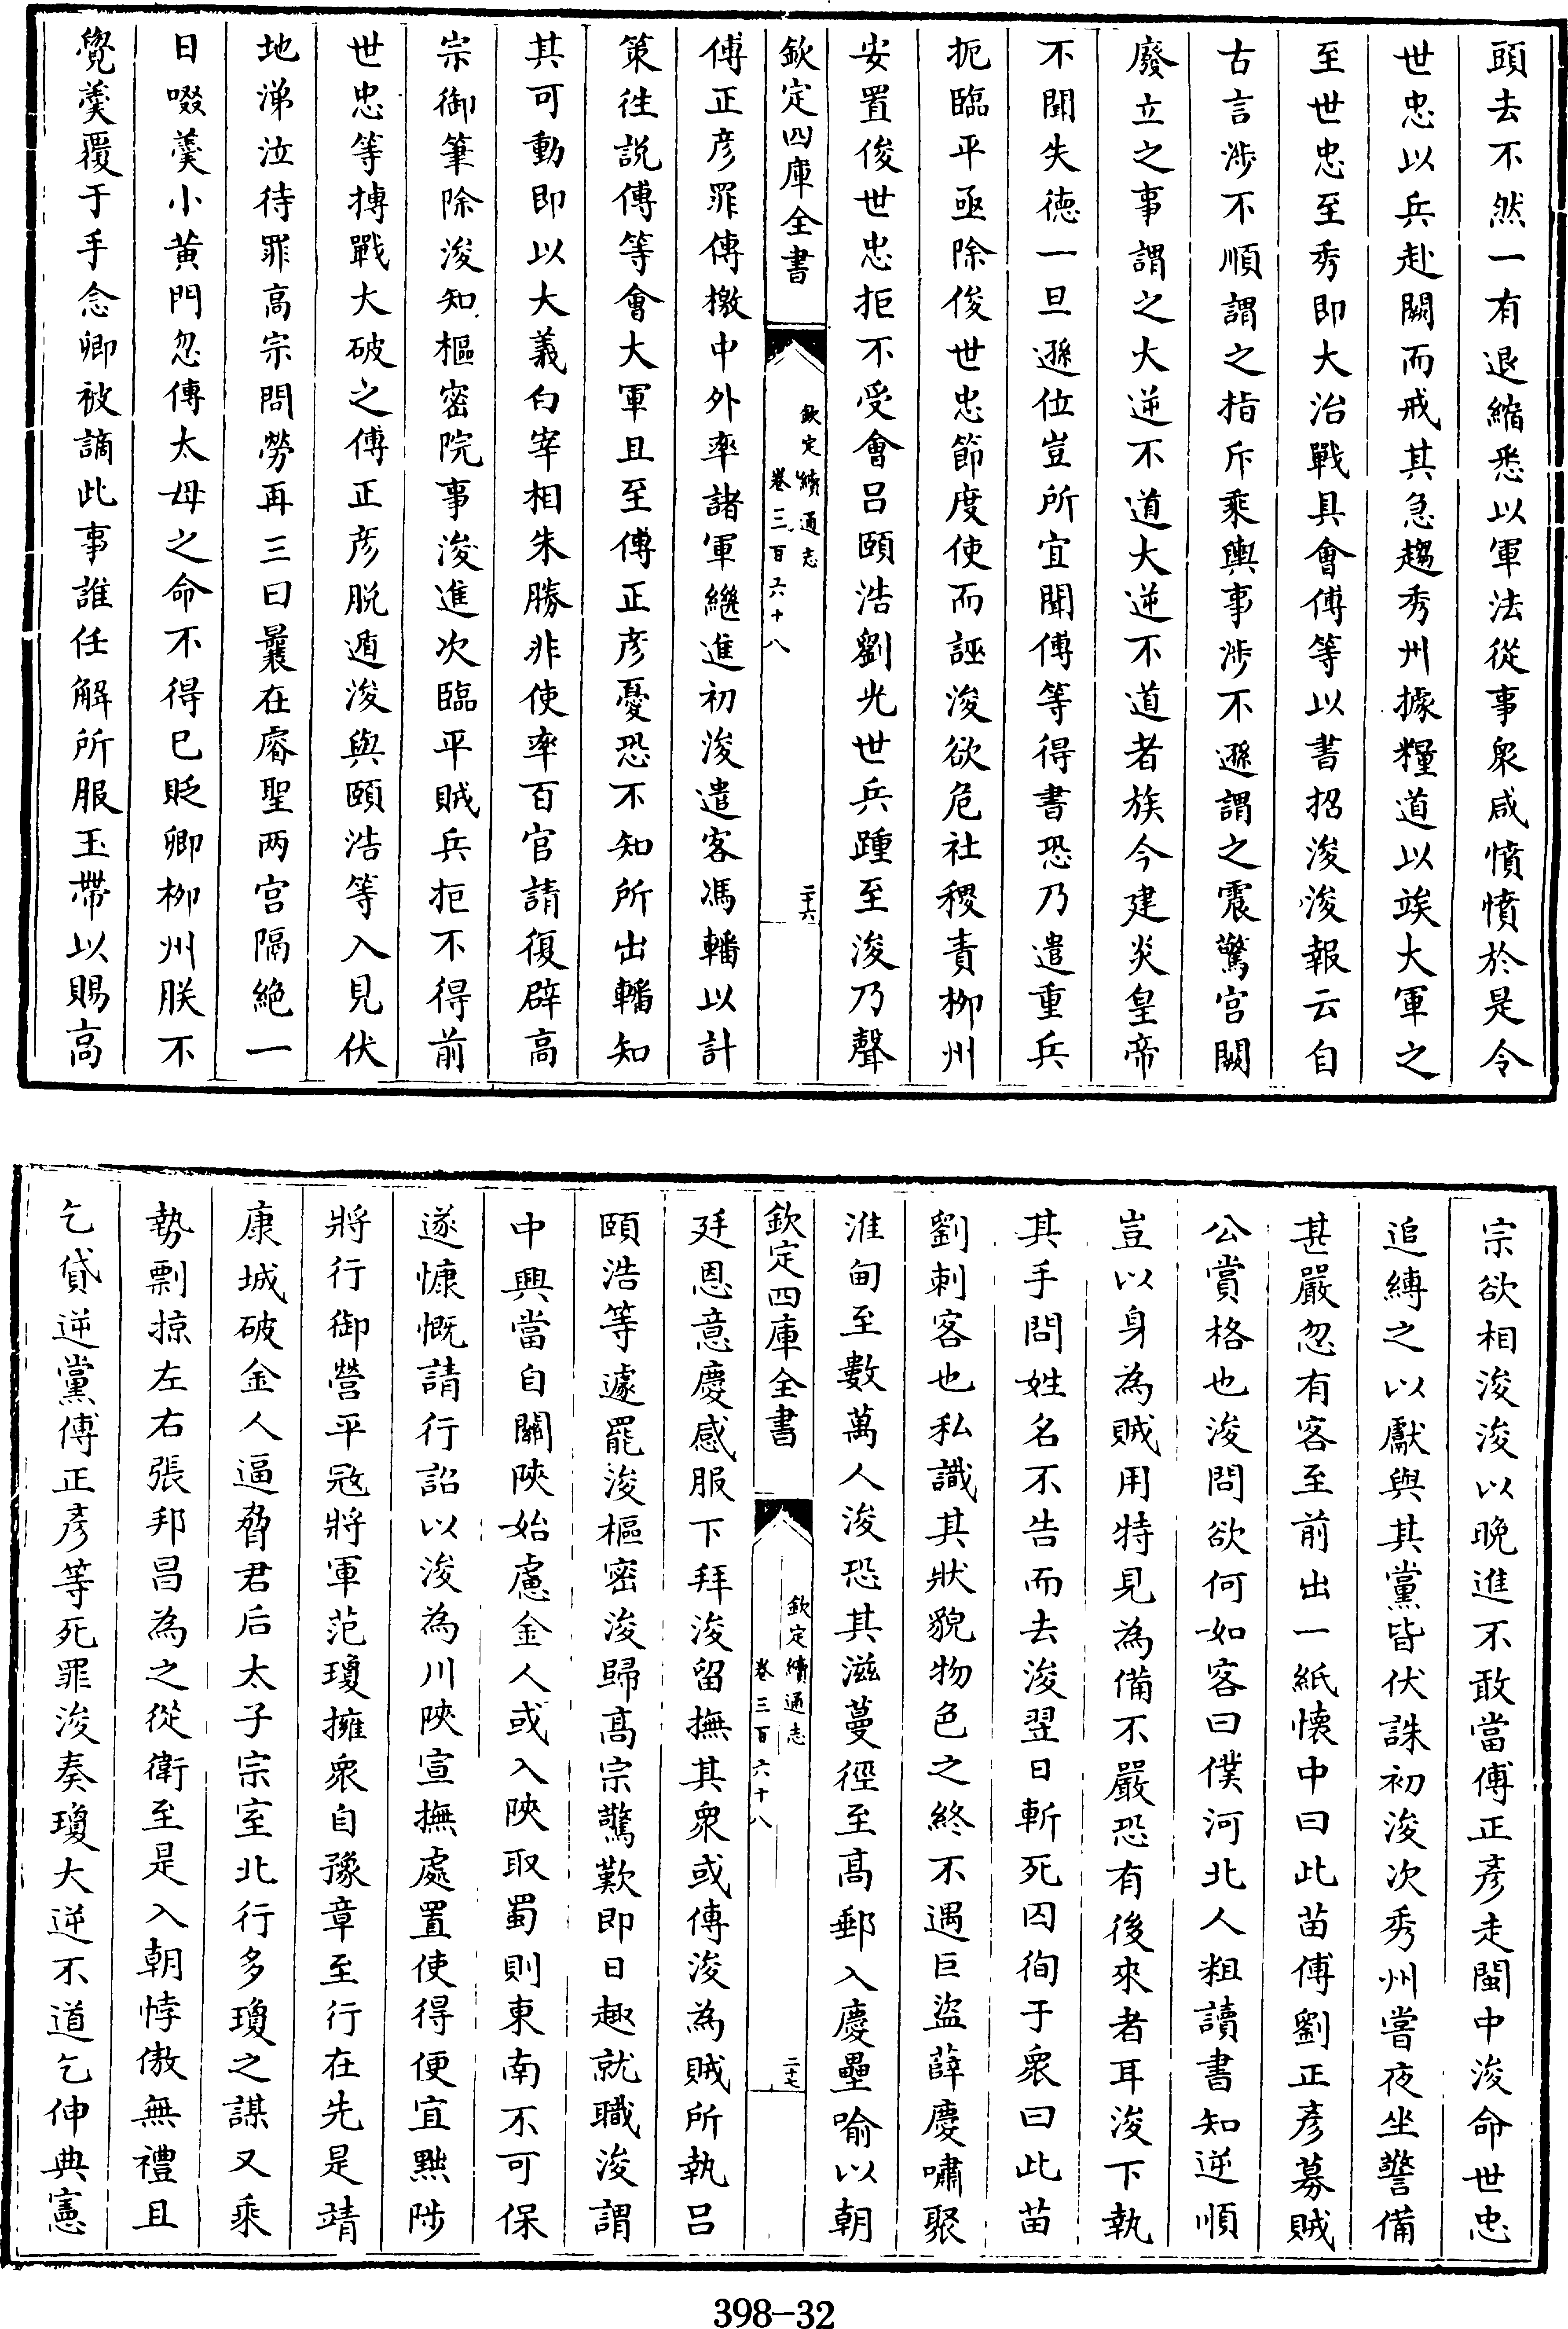 頭去不然一有退縮悉以軍法從事衆咸憤憤於是令
世忠以兵赴闕而戒其急趨秀州據糧道以竢大軍之
至世忠至秀即大治戰具會傅等以書招浚浚報云自
古言涉不順謂之指斥乘輿事涉不遜謂之震驚宫闕
廢立之事謂之大逆不道大逆不道者族今建炎皇帝
不聞失徳一旦遜位豈所宜聞傅等得書恐乃遣重兵
扼臨平亟除俊世忠節度使而誣浚欲危社稷責柳州
安置俊世忠拒不受會呂頤浩劉光世兵踵至浚乃聲
欽定四庫全書
欽定續通志
卷三百六十八
二十六
傅正彦罪傳檄中外率諸軍繼進初浚遣客馮轓以計
策徃説傅等會大軍且至傅正彦憂恐不知所出轓知
其可動即以大義白宰相朱勝非使率百官請復辟高
宗御筆除浚知樞密院事浚進次臨平賊兵拒不得前
世忠等搏戰大破之傅正彦脱遁浚與頤浩等入見伏
地涕泣待罪高宗問勞再三曰曩在睿聖两宫隔絶一
日啜羮小黄門忽傳太母之命不得已貶卿柳州朕不
覺羮覆于手念卿被謫此事誰任解所服玉帶以賜高
宗欲相浚浚以晚進不敢當傅正彦走閩中浚命世忠
追縛之以獻與其黨皆伏誅初浚次秀州嘗夜坐警備
甚嚴忽有客至前出一紙懐中曰此苗傅劉正彦募賊
公賞格也浚問欲何如客曰僕河北人粗讀書知逆順
豈以身為賊用特見為備不嚴恐有後來者耳浚下執
其手問姓名不告而去浚翌日斬死囚徇于衆曰此苗
劉刺客也私識其狀貌物色之終不遇巨盗薛慶嘯聚
淮甸至數萬人浚恐其滋蔓徑至髙郵入慶壘喻以朝
欽定四庫全書
欽定續通志
卷三百六十八
二十七
廷恩意慶感服下拜浚留撫其衆或傳浚為賊所執呂
頤浩等遽罷浚樞密浚歸髙宗驚歎即日趣就職浚謂
中興當自關陜始慮金人或入陜取蜀則東南不可保
遂慷慨請行詔以浚為川陜宣撫處置使得便宜黜陟
將行御營平冦將軍范瓊擁衆自豫章至行在先是靖
康城破金人逼脅君后太子宗室北行多瓊之謀又乘
勢剽掠左右張邦昌為之從衛至是入朝悖傲無禮且
乞貸逆黨傅正彦等死罪浚奏瓊大逆不道乞伸典憲
398-32